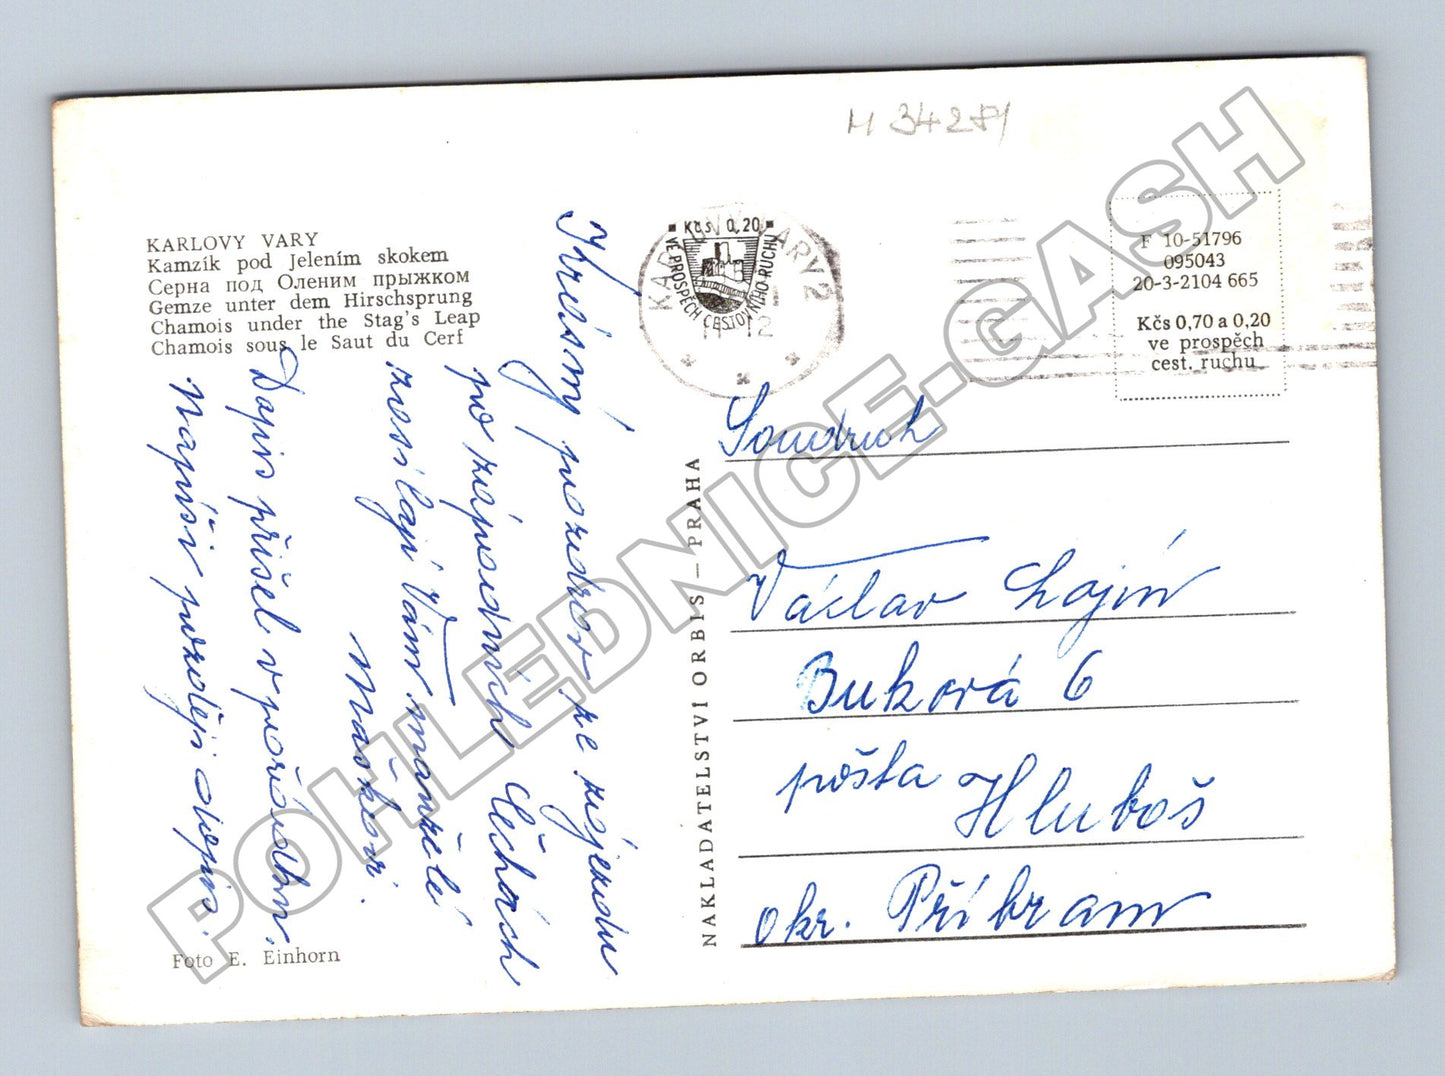 M 34281
KARLOVY VARY
Kamzík pod Jelením skokem
Серна под Оленим прыжком
Gemze unter dem Hirschsprung
Chamois under the Stag's Leap
Chamois sous le Saut du Cerf
Krásný pozdrav ze zájezdu
po západních Čechách
zasílají Vám manželé
Maškovi.
Dopis přišel v pořádku.
Napíši později dopis.
Foto E. Einhorn
NAKLADATELSTVÍ ORBIS — PRAHA
KARLOVY VARY 2
Kčs 0,20
VE PROSPĚCH CESTOVNÍHO RUCHU
12
F 10-51796
095043
20-3-2104 665
Kčs 0,70 a 0,20
ve prospěch
cest. ruchu
Soudruh
Václav Lojín
Buková 6
pošta Hluboš
okr. Příbram
POHLEDNICE-GASH